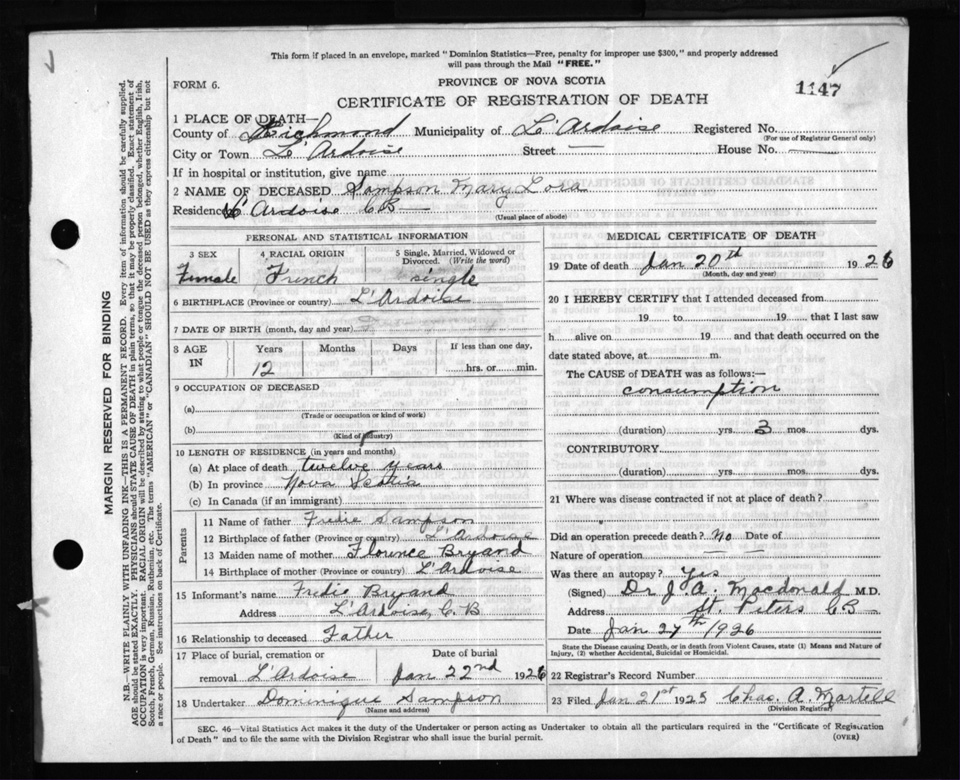 This form if placed in an envelope, marked "Dominion Statistics—Free, penalty for improper use $300," and properly addressed
will pass through the Mail "FREE."
FORM 6.
PROVINCE OF NOVA SCOTIA
1147
CERTIFICATE OF REGISTRATION OF DEATH
1 PLACE OF DEATH—
County of Richmond Municipality of L'Ardoise Registered No.
(For use of Registrar General only)
City or Town L'Ardoise Street — House No. —
If in hospital or institution, give name
2 NAME OF DECEASED Sampson Mary Lola
Residence L'Ardoise CB
(Usual place of abode)
PERSONAL AND STATISTICAL INFORMATION
3 SEX 4 RACIAL ORIGIN 5 Single, Married, Widowed or
Divorced. (Write the word)
Female French single
6 BIRTHPLACE (Province or country) L'Ardoise
7 DATE OF BIRTH (month, day and year)
8 AGE IN Years Months Days If less than one day,
12 hrs. or min.
9 OCCUPATION OF DECEASED
(a)
(Trade or occupation or kind of work)
(b)
(Kind of industry)
10 LENGTH OF RESIDENCE (in years and months)
(a) At place of death twelve years
(b) In province Nova Scotia
(c) In Canada (if an immigrant)
Parents
11 Name of father Fredie Sampson
12 Birthplace of father (Province or country) L'Ardoise
13 Maiden name of mother Florence Bryand
14 Birthplace of mother (Province or country) L'Ardoise
15 Informant's name Fridie Bryand
Address L'Ardoise, C.B
16 Relationship to deceased Father
17 Place of burial, cremation or Date of burial
removal L'Ardoise Jan 22nd 1926
18 Undertaker Dominique Sampson
(Name and address)
MEDICAL CERTIFICATE OF DEATH
19 Date of death Jan 20th 1926
(Month, day and year)
20 I HEREBY CERTIFY that I attended deceased from
19 to 19 that I last saw
h alive on 19 and that death occurred on the
date stated above, at m.
The CAUSE of DEATH was as follows:—
consumption
(duration) yrs. 3 mos. dys.
CONTRIBUTORY
(duration) yrs. mos. dys.
21 Where was disease contracted if not at place of death?
Did an operation precede death? no Date of
Nature of operation — —
Was there an autopsy? Yes
(Signed) Dr J. A. Macdonald M.D.
Address St. Peters CB
Date Jan 27th 1926
State the Disease causing Death, or in death from Violent Causes, state (1) Means and Nature of
Injury, (2) whether Accidental, Suicidal or Homicidal.
22 Registrar's Record Number
23 Filed Jan 21st 1925 Chas. A. Martell
(Division Registrar)
SEC. 46—Vital Statistics Act makes it the duty of the Undertaker or person acting as Undertaker to obtain all the particulars required in the "Certificate of Registration
of Death" and to file the same with the Division Registrar who shall issue the burial permit.
(OVER)
MARGIN RESERVED FOR BINDING
N.B.—WRITE PLAINLY WITH UNFADING INK—THIS IS A PERMANENT RECORD. Every item of information should be carefully supplied.
AGE should be stated EXACTLY. PHYSICIANS should STATE CAUSE OF DEATH in plain terms, so that it may be properly classified. Exact statement of
OCCUPATION is very important. RACIAL ORIGIN will be described by stating to what people or tongue the deceased person belonged, whether English, Irish,
Scotch, French, German, Russian, Ruthenian, etc. The terms "AMERICAN" or "CANADIAN" SHOULD NOT BE USED as they express citizenship but not
a race or people. See instructions on back of Certificate.